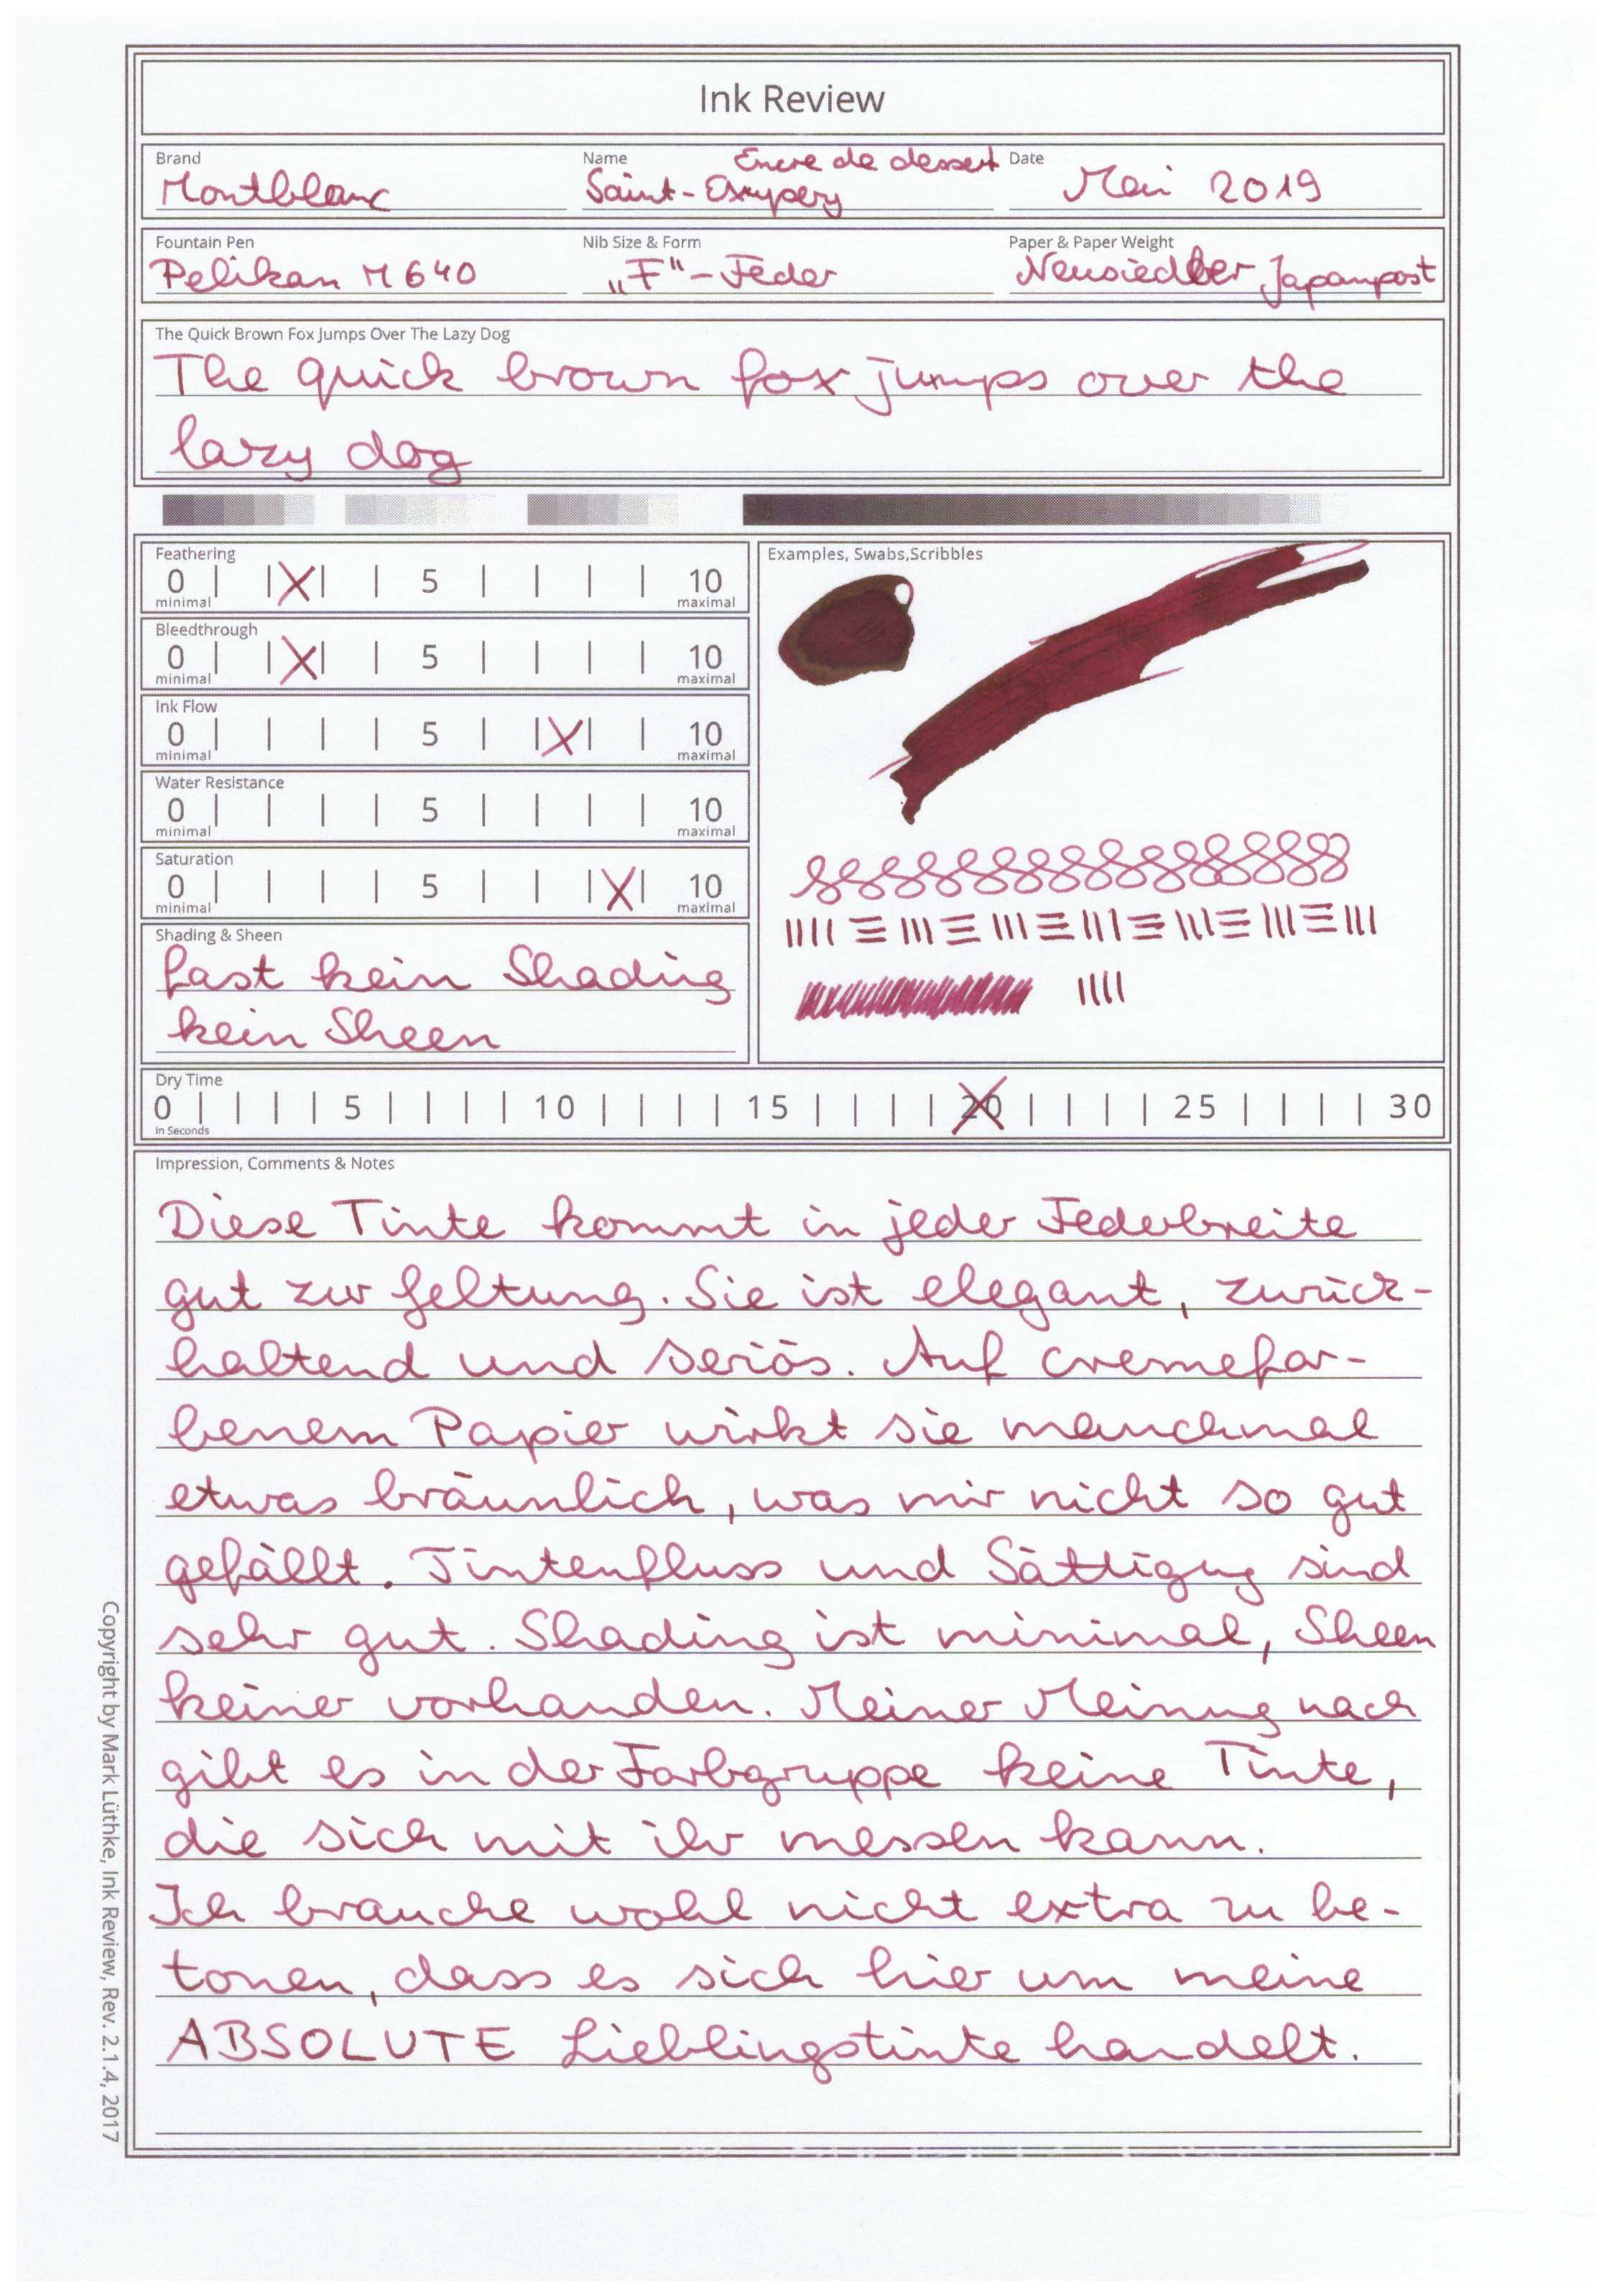 Ink Review
Brand
Name
Encre de dessert
Date
Montblanc
Saint-Exupery
Mai 2019
Fountain Pen
Nib Size & Form
Paper & Paper Weight
Pelikan M 640
„F"-Feder
Neusiedler Japanpost
The Quick Brown Fox Jumps Over The Lazy Dog
The quick brown fox jumps over the
lazy dog
Feathering
0 5 10
minimal maximal
Bleedthrough
0 5 10
minimal maximal
Ink Flow
0 5 10
minimal maximal
Water Resistance
0 5 10
minimal maximal
Saturation
0 5 10
minimal maximal
Shading & Sheen
fast kein Shading
kein Sheen
Examples, Swabs,Scribbles
Dry Time
0 5 10 15 20 25 30
In Seconds
Impression, Comments & Notes
Diese Tinte kommt in jeder Federbreite
gut zur Geltung. Sie ist elegant, zurück-
haltend und seriös. Auf cremefar-
benem Papier wirkt sie manchmal
etwas bräunlich, was mir nicht so gut
gefällt. Tintenfluss und Sättigung sind
sehr gut. Shading ist minimal, Sheen
keiner vorhanden. Meiner Meinung nach
gibt es in der Farbgruppe keine Tinte,
die sich mit ihr messen kann.
Ich brauche wohl nicht extra zu be-
tonen, dass es sich hier um meine
ABSOLUTE Lieblingstinte handelt.
Copyright by Mark Lüthke, Ink Review, Rev. 2.1.4, 2017